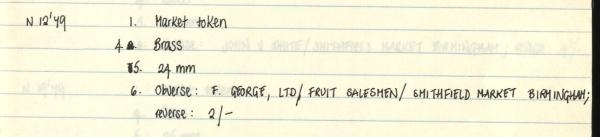 N 12'49 1. Market token
4. Brass
5. 24 mm
6. Obverse: F. GEORGE, LTD/ FRUIT SALESMEN/ SMITHFIELD MARKET BIRMINGHAM;
reverse: 2/-